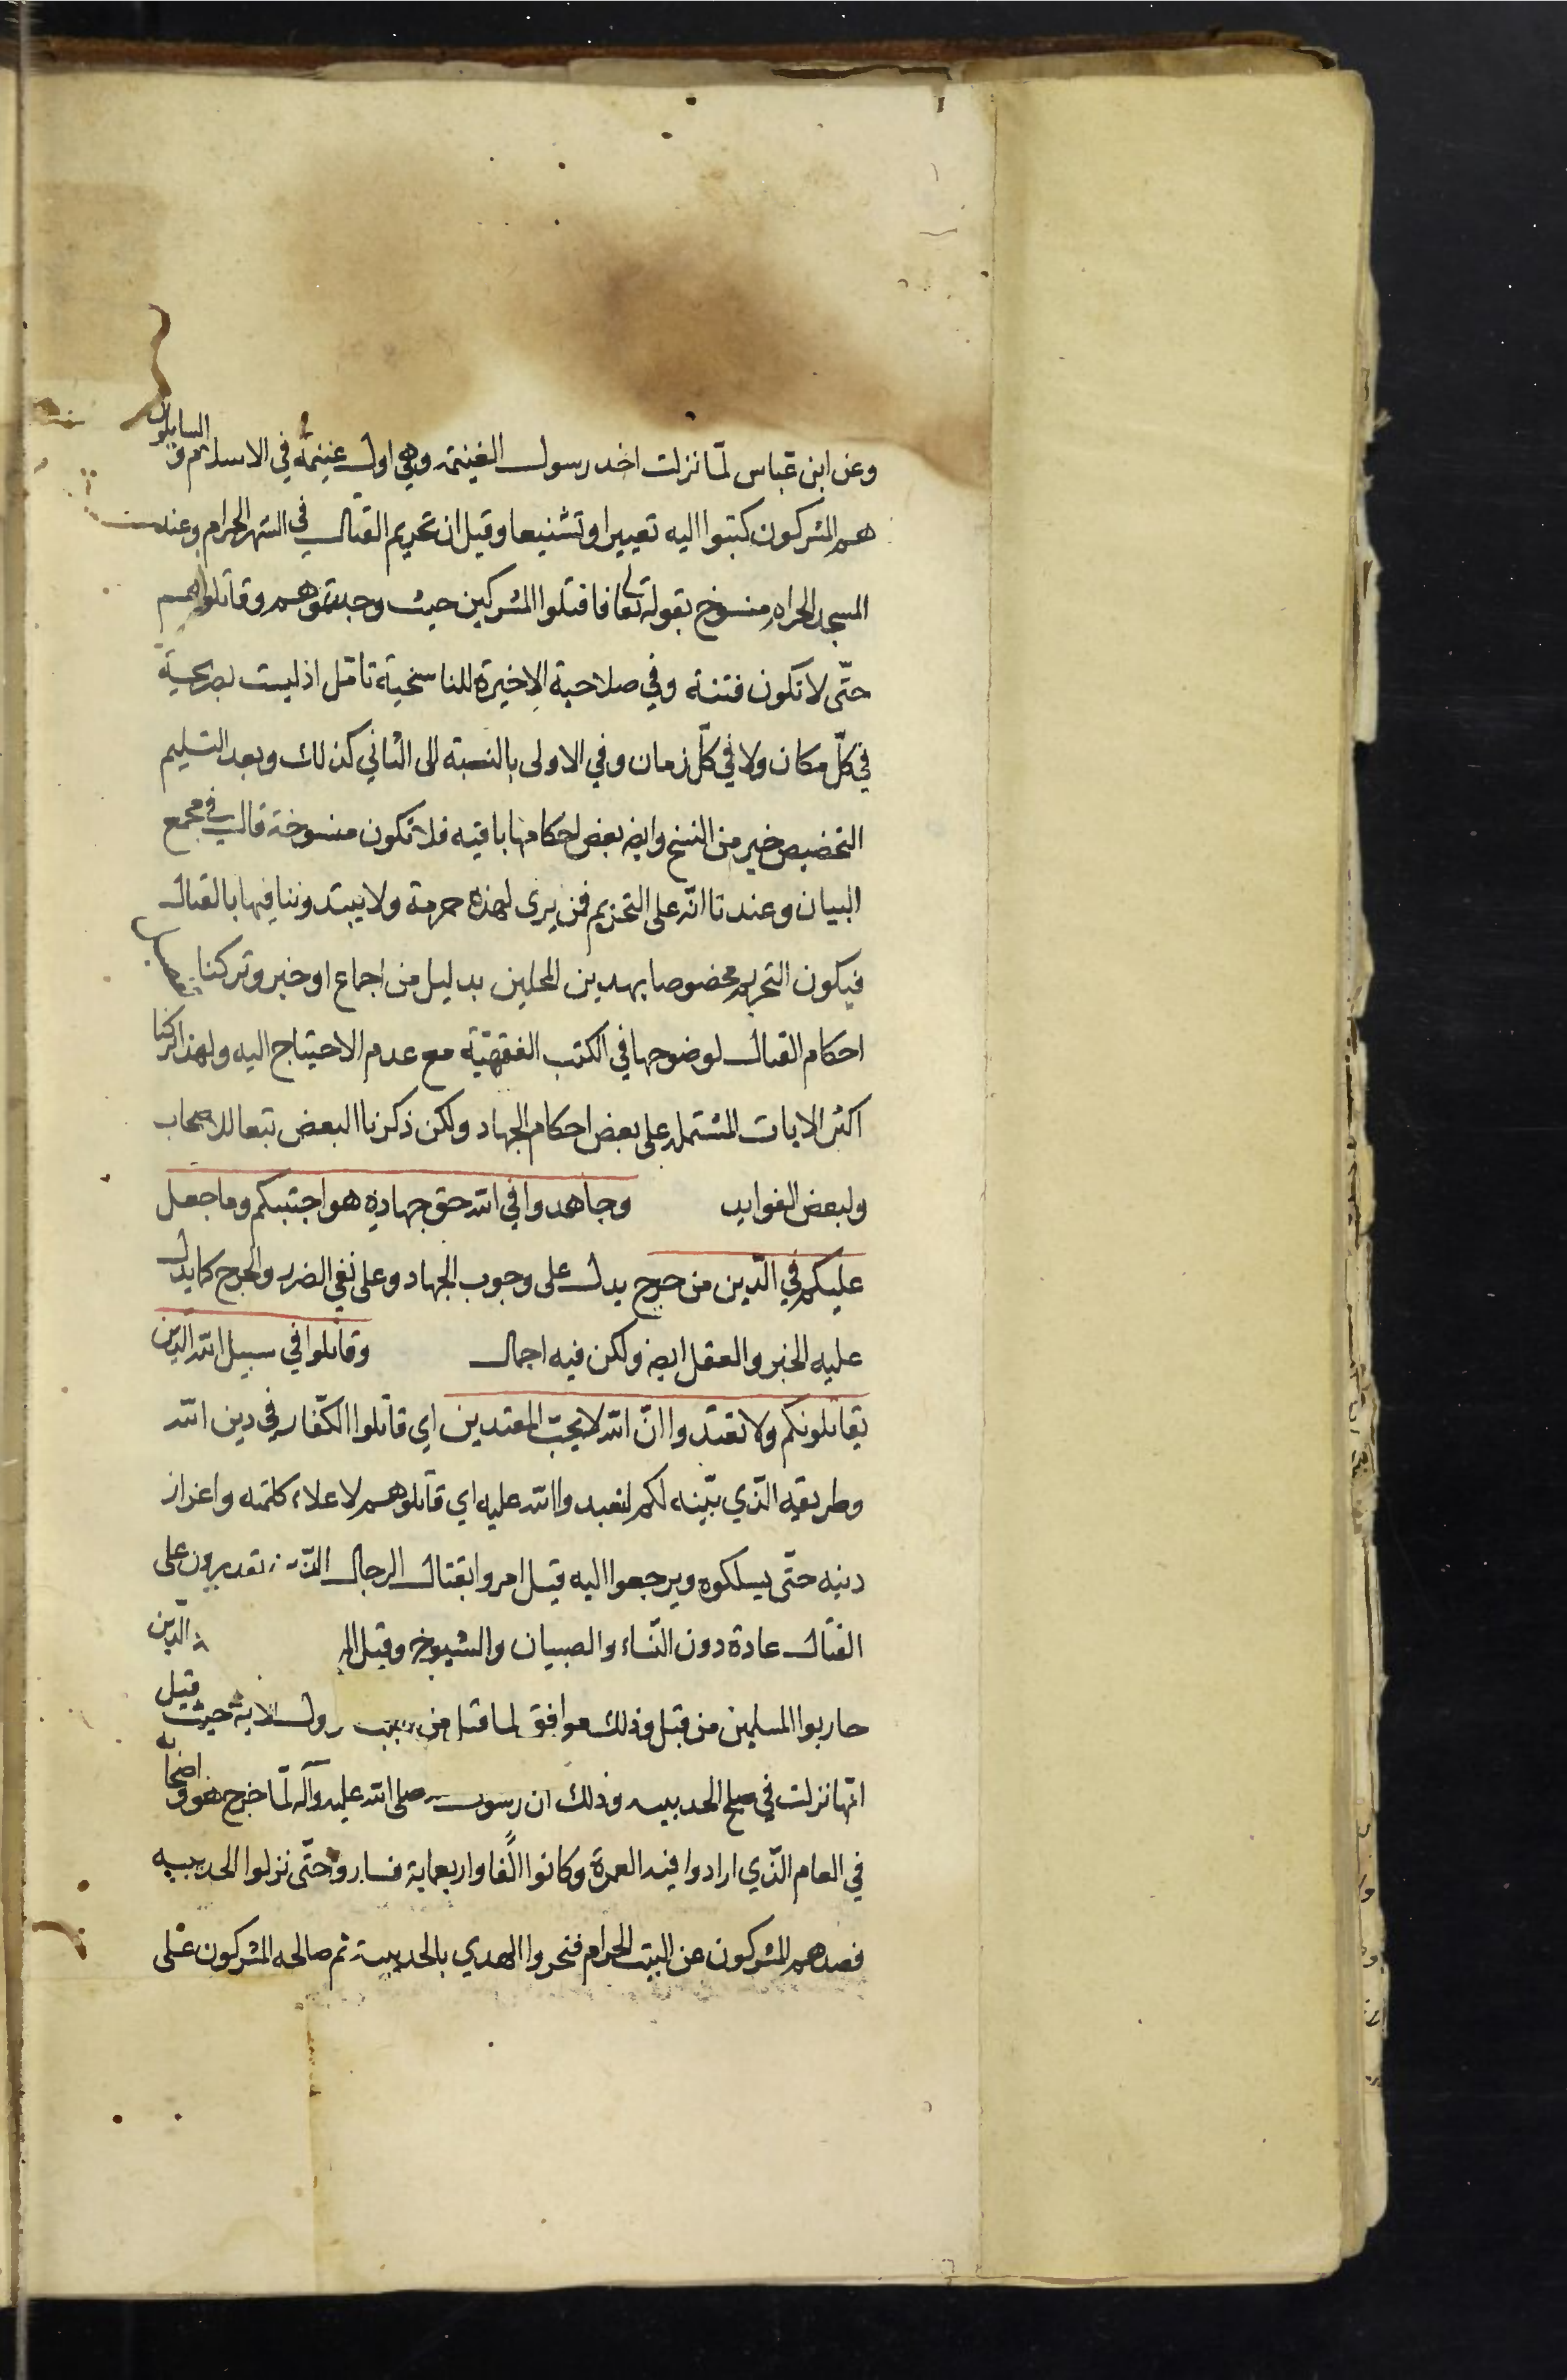 وعن ابن عباس لمّا نزلت اخد رسول الغنيمة وهي اول غنيمة في الاسلام و السايلون
هم المشركون كتبوا اليه تعييرا وتشنيعا وقيل ان تحريم القتال في الشهر الحرام وعند
المسجد الحرام منسوخ بقوله تعا فاقتلوا المشركين حيث وجدتموهم وقاتلوهم
حتّى لا تكون فتنة وفي صلاحية الاخيرة للناسخية تامّل اذ ليست بصريحة
في كلّ مكان ولا في كلّ زمان وفي الاولى بالنسبة الى الثاني كذلك وبعد التسليم
التخصيص خير من النسخ وايضا بعض احكامها باقيه فلا تكون منسوخة قال في مجمع
البيان وعندنا انّه على التحريم فمن يرى لهذه حرمة ولا يبتدوننا فيها بالقتال
فيكون التحريم مخصوصا بهدين المحلين بدليل من اجماع او خبر وتركنا
احكام القتال لوضوحها في الكتب الفقهيّة مع عدم الاحتياج اليه ولهذا تركنا
اكثر الايات المشتمله على بعض احكام الجهاد ولكن ذكرنا البعض تبعا للاصحاب
ولبعض الفوايد وجاهدوا في الله حق جهاده هو اجتبيكم وما جعل
عليكم في الدّين من حرج يدل على وجوب الجهاد وعلى نفي الضرر والحرج كما يدل
عليه الخبر والعقل ايضا ولكن فيه اجمال وقاتلوا في سبيل الله الّذين
يقاتلونكم ولا تعتدوا انّ الله لا يحبّ المعتدين اي قاتلوا الكفّار في دين الله
وطريقه الّذي بيّنه لكم لتعبدوا الله عليه اي قاتلوهم لاعلاء كلمته واعزاز
دينه حتّى يسلكوه ويرجعوا اليه قيل امروا بقتال الرجال يقدرون على
القتال عادة دون النّساء والصبيان والشيوخ وقيل الّذين
حاربوا المسلمين من قبل وذلك موافق لما قيل من سبب نزول الاية حيث قيل
انّها نزلت في صلح الحديبيه وذلك ان رسول صلى الله عليه وآله لمّا خرج هو واصحابه
في العام الّذي ارادوا فيه العمرة وكانوا الفا واربعماية فساروا حتّى نزلوا الحديبيه
فصدهم المشركون عن البيت الحرام فنحروا الهدي بالحديبية ثم صالحه المشركون على